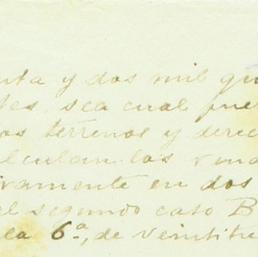 nta y dos mil qu
tes, sea cual fue
os terrenos y derec
lculan las
ivamente en dos
el segundo caso B
la 6ª, de veintitre